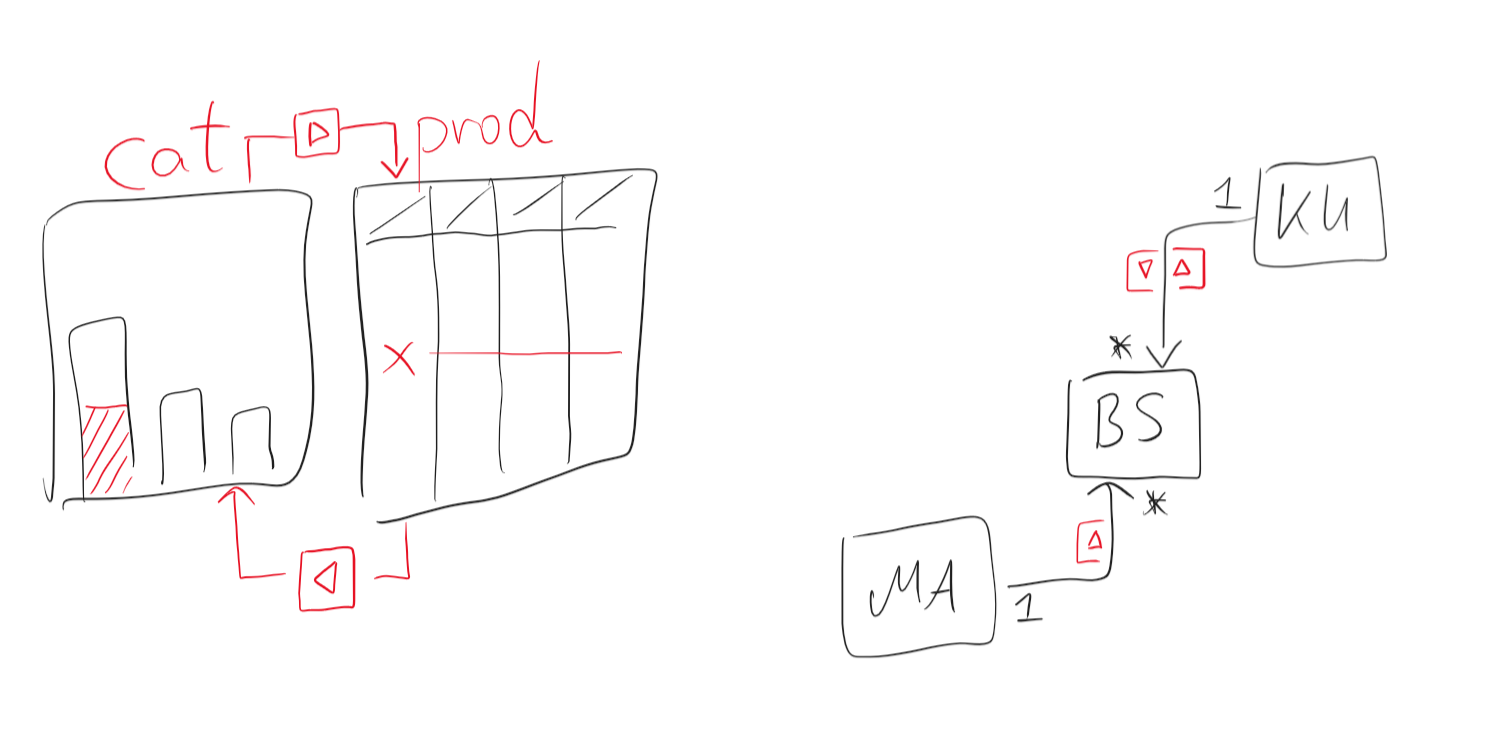 cat
prod
X
1
KU
*
BS
*
MA
1